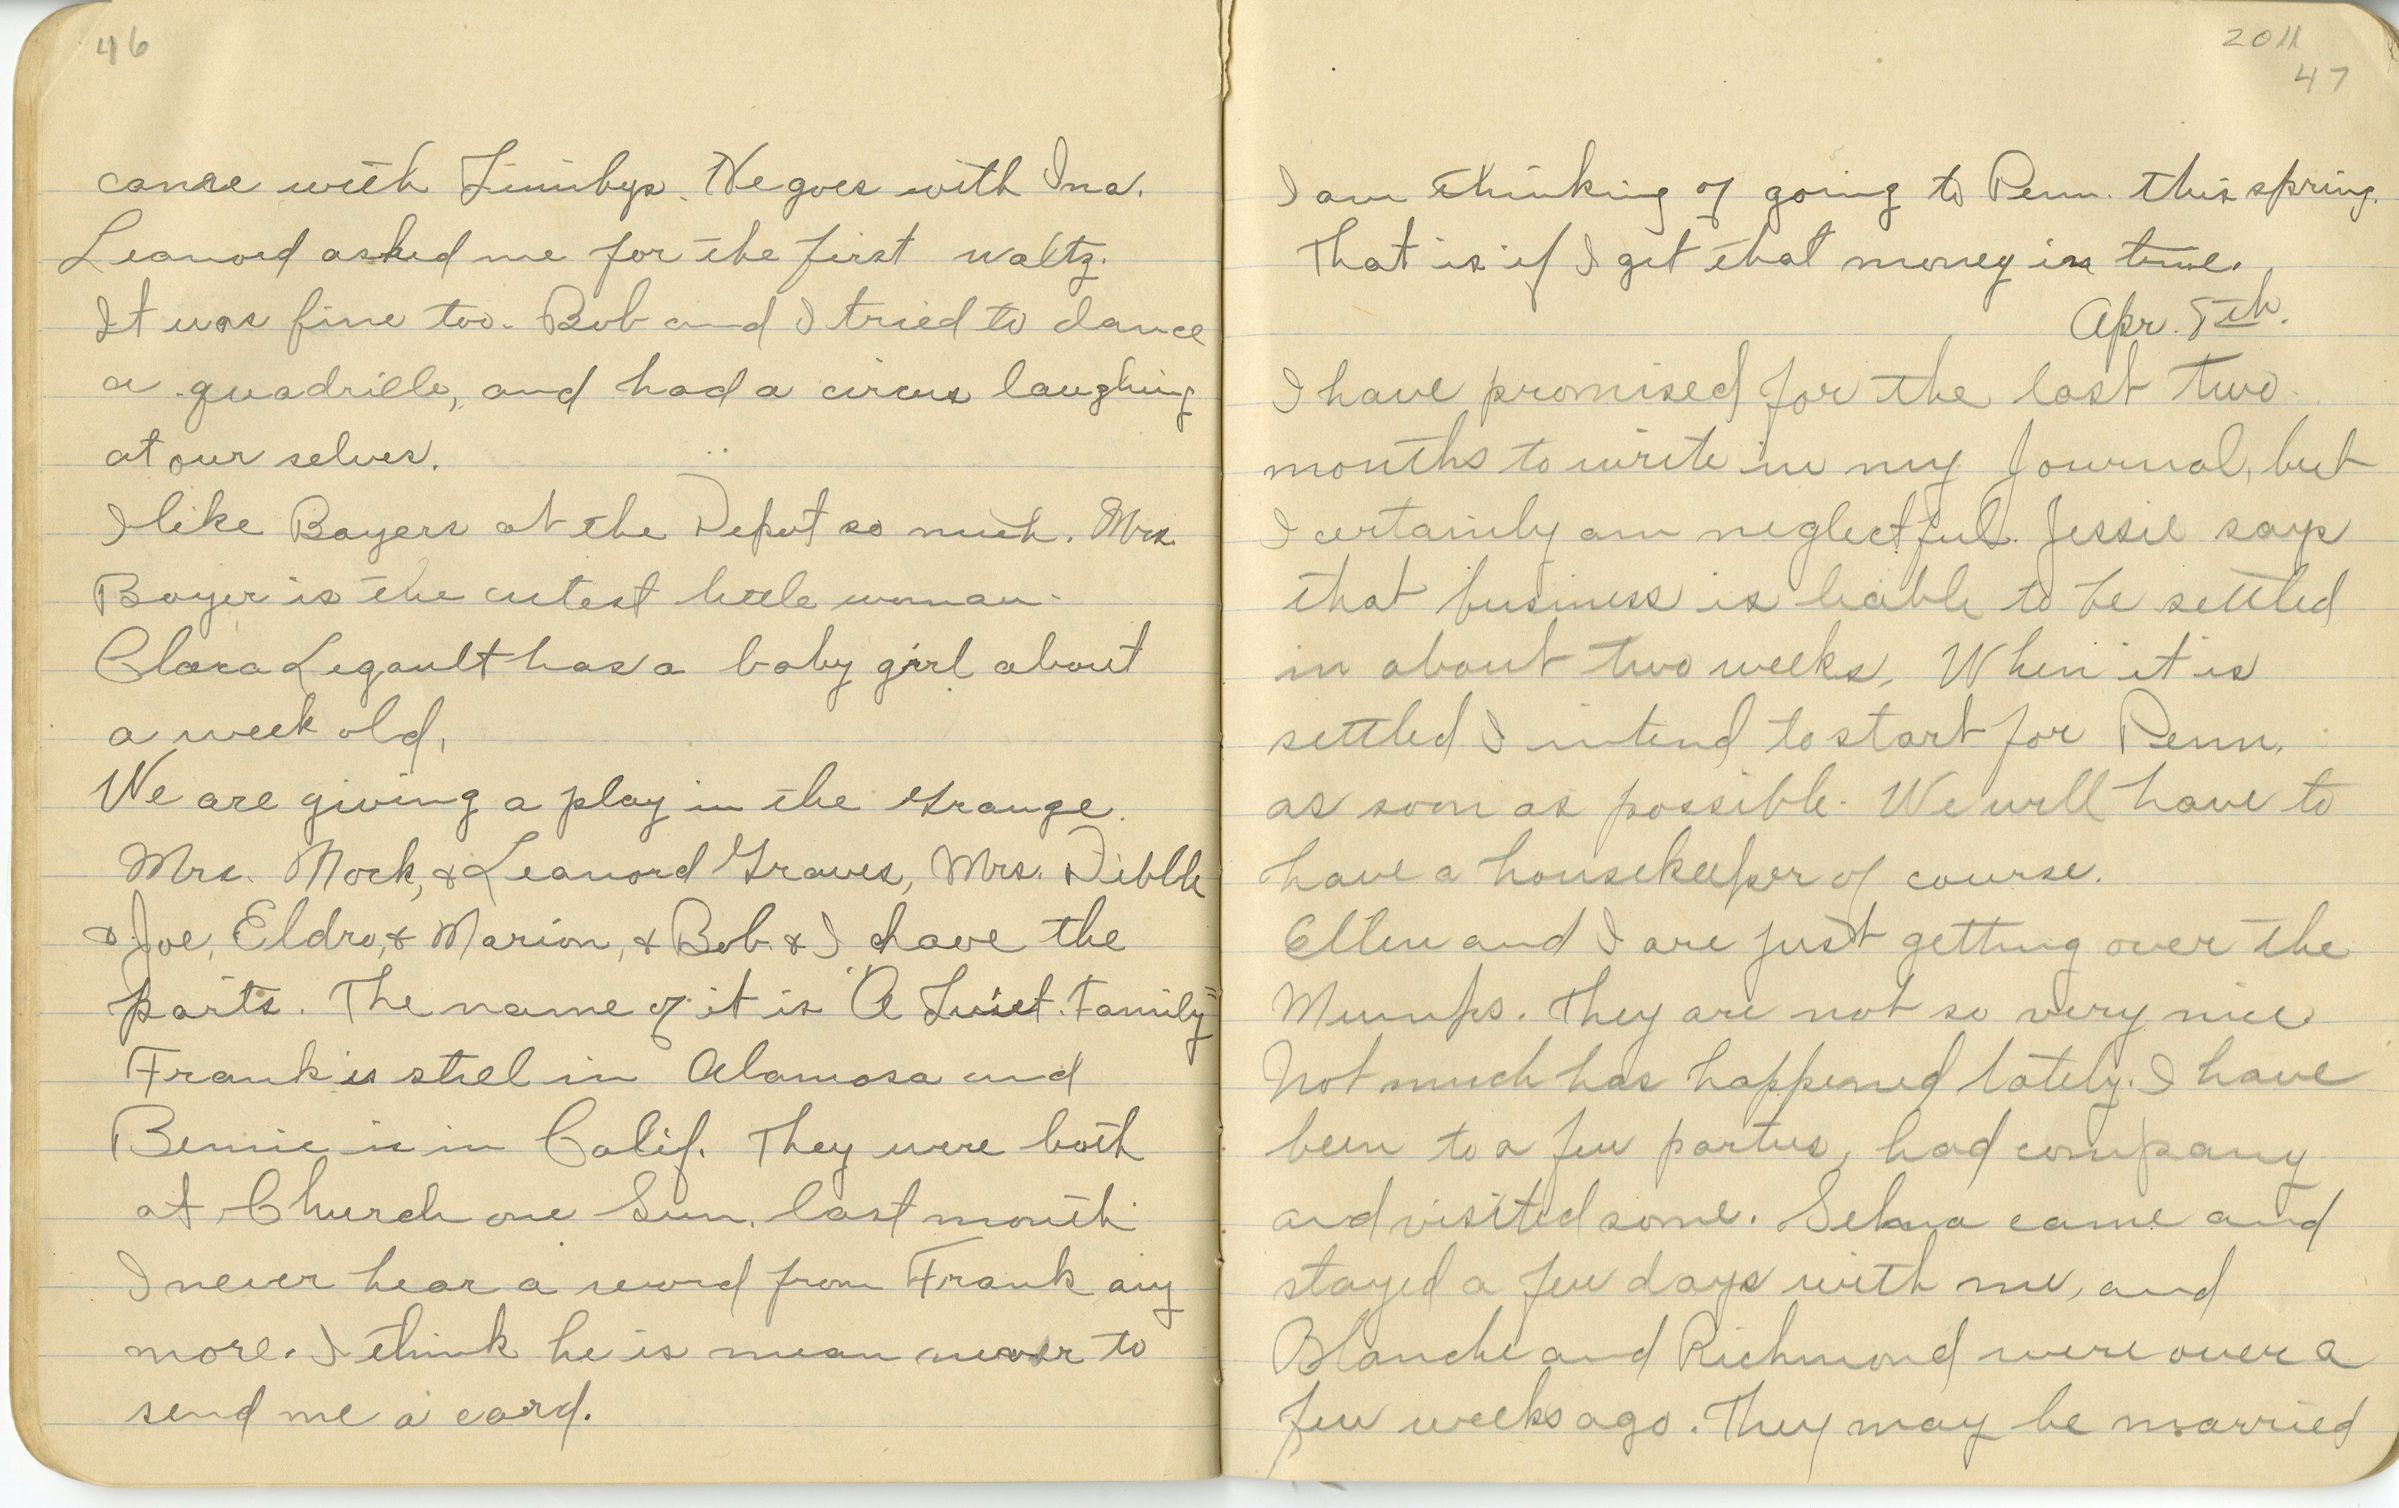 46
came with Limibys. He goes with Ina.
Leanord asked me for the first waltz.
It was fine too. Bob and I tried to dance
a quadrille, and had a circus laughing
at our selves.
I like Boyers at the Depot so much. Mrs.
Boyer is the cutest little woman.
Clara Legault has a baby girl about
a week old.
We are giving a play in the Grange.
Mrs. Mock, & Leanord Graves, Mrs. Dibble
& Joe, Eldro, & Marion, & Bob & I have the
parts. The name of it is "A Quiet Family"
Frank is still in Alamosa and
Bennie is in Calif. They were both
at Church one Sun. last month.
I never hear a word from Frank any
more. I think he is mean never to
send me a card.
2011
47
I am thinking of going to Penn. this spring.
That is if I get that money in time.
Apr. 5th.
I have promised for the last two
months to write in my Journal, but
I certainly am neglectful. Jessie says
that business is liable to be settled
in about two weeks. When it is
settled I intend to start for Penn.
as soon as possible. We will have to
have a housekeeper of course.
Ellen and I are just getting over the
Mumps. They are not so very nice
Not much has happened lately. I have
been to a few parties, had company
and visited some. Selma came and
stayed a few days with me, and
Blanche and Richmond were over a
few weeks ago. They may be married